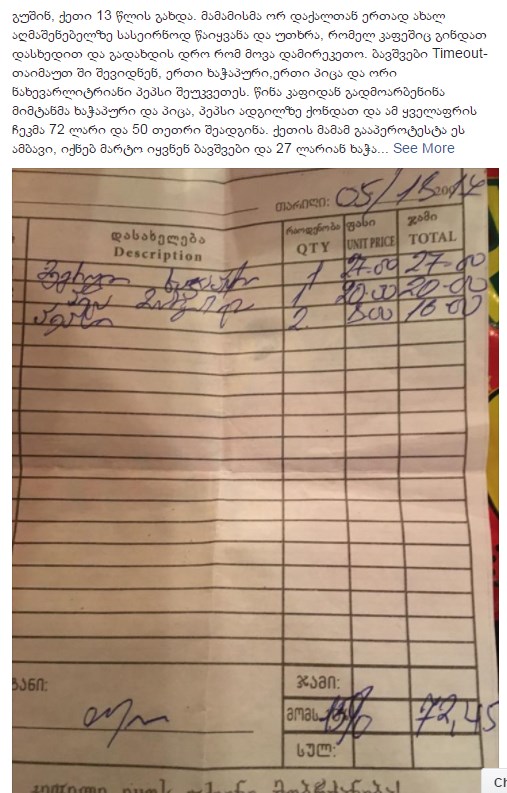 გუშინ, ქეთი 13 წლის გახდა. მამამისმა ორ დაქალთან ერთად ახალ
აღმაშენებელზე სასეირნოდ წაიყვანა და უთხრა, რომელ კაფეშიც გინდათ
დასხედით და გადახდის დრო რომ მოვა დამირეკეთო. ბავშვები Timeout-
თაიმაუთ ში შევიდნენ, ერთი ხაჭაპური,ერთი პიცა და ორი
ნახევარლიტრიანი პეპსი შეუკვეთეს. წინა კაფიდან გადმოარბენინა
მიმტანმა ხაჭაპური და პიცა, პეპსი ადგილზე ქონდათ და ამ ყველაფრის
ჩეკმა 72 ლარი და 50 თეთრი შეადგინა. ქეთის მამამ გააპეროტესტა ეს
ამბავი, იქნებ მარტო იყვნენ ბავშვები და 27 ლარიან ხაჭა... See More
თარიღი: 05/13 2014
დასახელება რაოდენობა ფასი ჯამი
Description QTY UNIT PRICE TOTAL
1 27-00 27-00
1 20.00 20-00
2 800 16-00
ჯამი:
72,45
სულ:
Ch